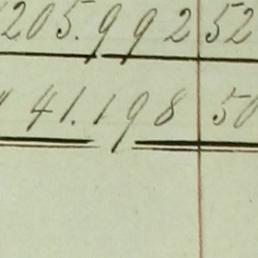 205.992 52
41.198 50